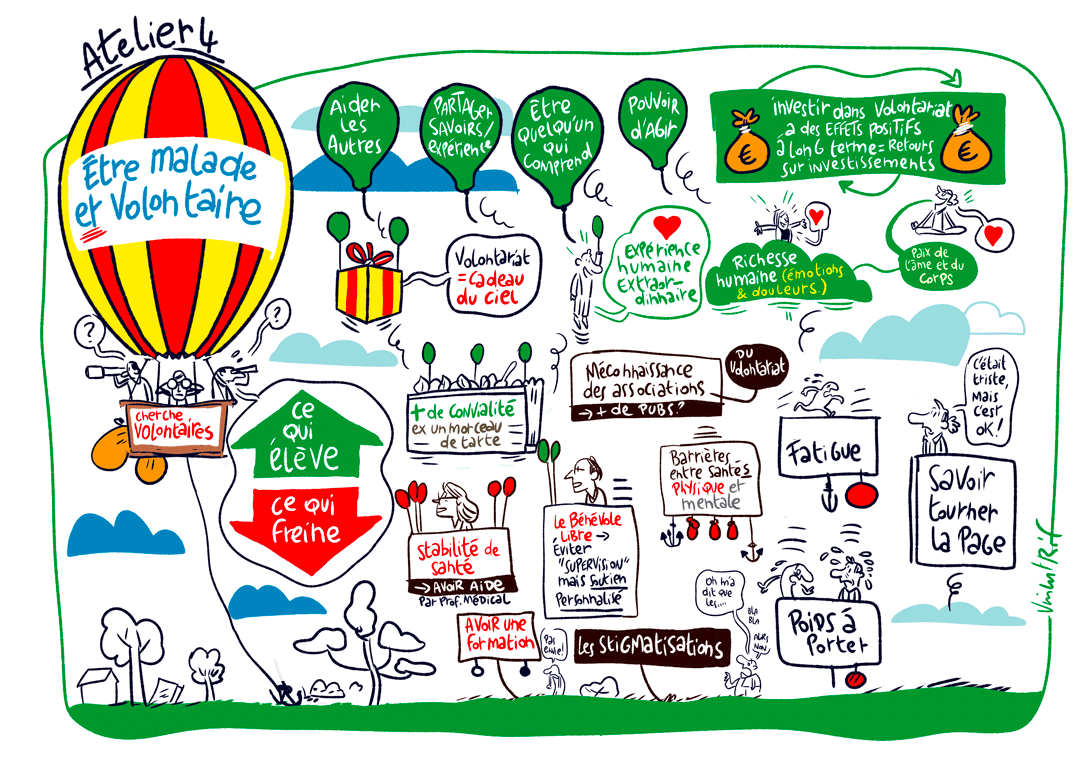 Atelier 4
Être malade
et Volontaire
?
?
cherche
VOLONTAIRES
Aider
Les
Autres
PARTAGER
SAVOIRS/
expérience
ÊTRE
QUELQU'UN
qui
Comprend
POUVOIR
d'AGIR
investir dans Volontariat
a des EFFETS POSITIFS
à lonG terme = Retours
sur investissements
€
€
Volontariat
= Cadeau
du Ciel
Expérience
humaine
Extraor-
dinnaire
Richesse
humaine (émotions
& douleurs.)
Paix de
l'âme et du
Corps
ce
qui
élève
ce qui
Freine
+ de convialité
ex un morceau
de tarte
Méconnaissance
des associations
→ + de PUBS?
DU
Volontariat
C'était
triste,
mais
c'est
ok!
Fatigue
Savoir
tourner
la Page
Barrières
entre santés
Physique et
mentale
Stabilité de
santé
→ AVOIR AIDE
Par Prof. Médical
Le Bénévole
LIBRE →
Éviter
"SUPERVISION"
mais Soutien
Personnalisé
AVOIR une
formation
Pas
envie!
Les Stigmatisations
Oh m'a
dit que
les....
BLA
BLA
Poids à
Porter
Vincent Rif